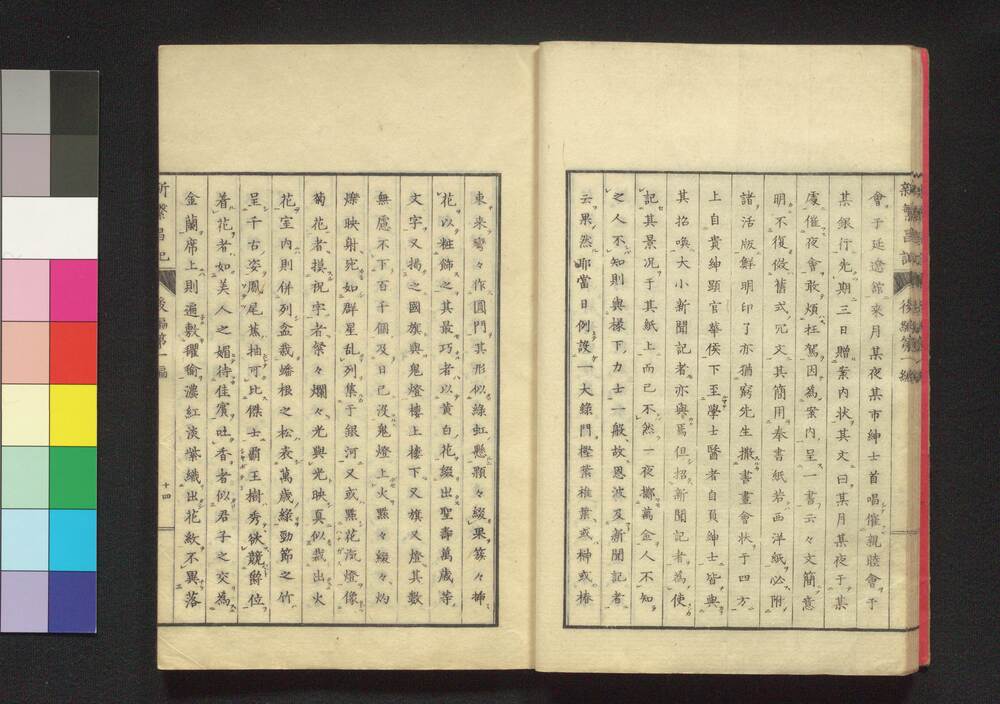 會于延遼館來月某夜某市紳士首唱催親睦會于
某銀行先期三日贈案内狀其文曰某月某夜于某
處催夜會敢煩枉駕因為案内呈一書云々文簡意
明不復倣舊式冗文其簡用奉書紙若西洋紙必附
諸活版鮮明印了亦猶窮先生撒書畫會狀于四方
上自貴紳顕官華侯下至學士醫者自員紳士皆與
其招喚大小新聞記者亦與焉但招新聞記者為使
記其景况于其紙上而已不然一夜擲萬金人不知
之人不知則與樣下力士一般故恩波及新聞記者
云果然耶當日例設一大綠門樫葉椎葉或榊或椿
東来彎々作圓門其形似綠虹懸顆々綴果簇々挿
花以粧飾之其最巧者以黄白花綴出聖壽萬歳等
文字又揭之國旗與鬼燈樓上樓下又旗又燈其數
無慮不下百千個及日已没鬼燈上火點々綴々灼
爍映射宛如群星乱列集于銀河又或點花流燈像
菊花者摸祝字者粲々爛々光與光映真似裁出火
花室内則併列盆栽蟠根之松表萬歳綠勁節之竹
呈千古姿鳳尾蕉抽可比傑士霸王樹秀欲競爵位
着花者如美人之媚待佳賓吐香者似君子之交為
金蘭席上則遍敷氍毹濃紅淡紫織出花紋不異落
新繁昌記
後編第一編
十四